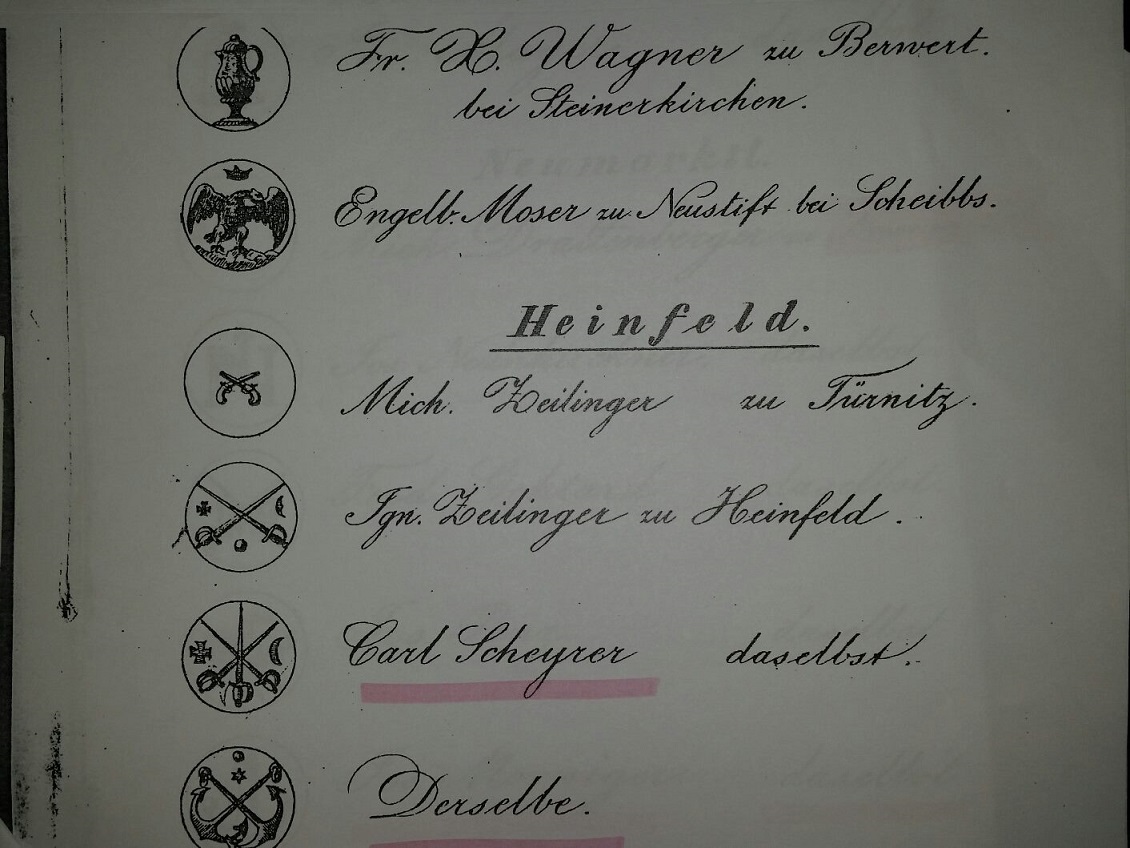 Fr. X. Wagner zu Berwert.
bei Steinerkirchen.
Engelb. Moser zu Neustift bei Scheibbs.
Heinfeld.
Mich. Zeilinger zu Türnitz.
Ign. Zeilinger zu Heinfeld.
Carl Scheyrer daselbst.
Derselbe.